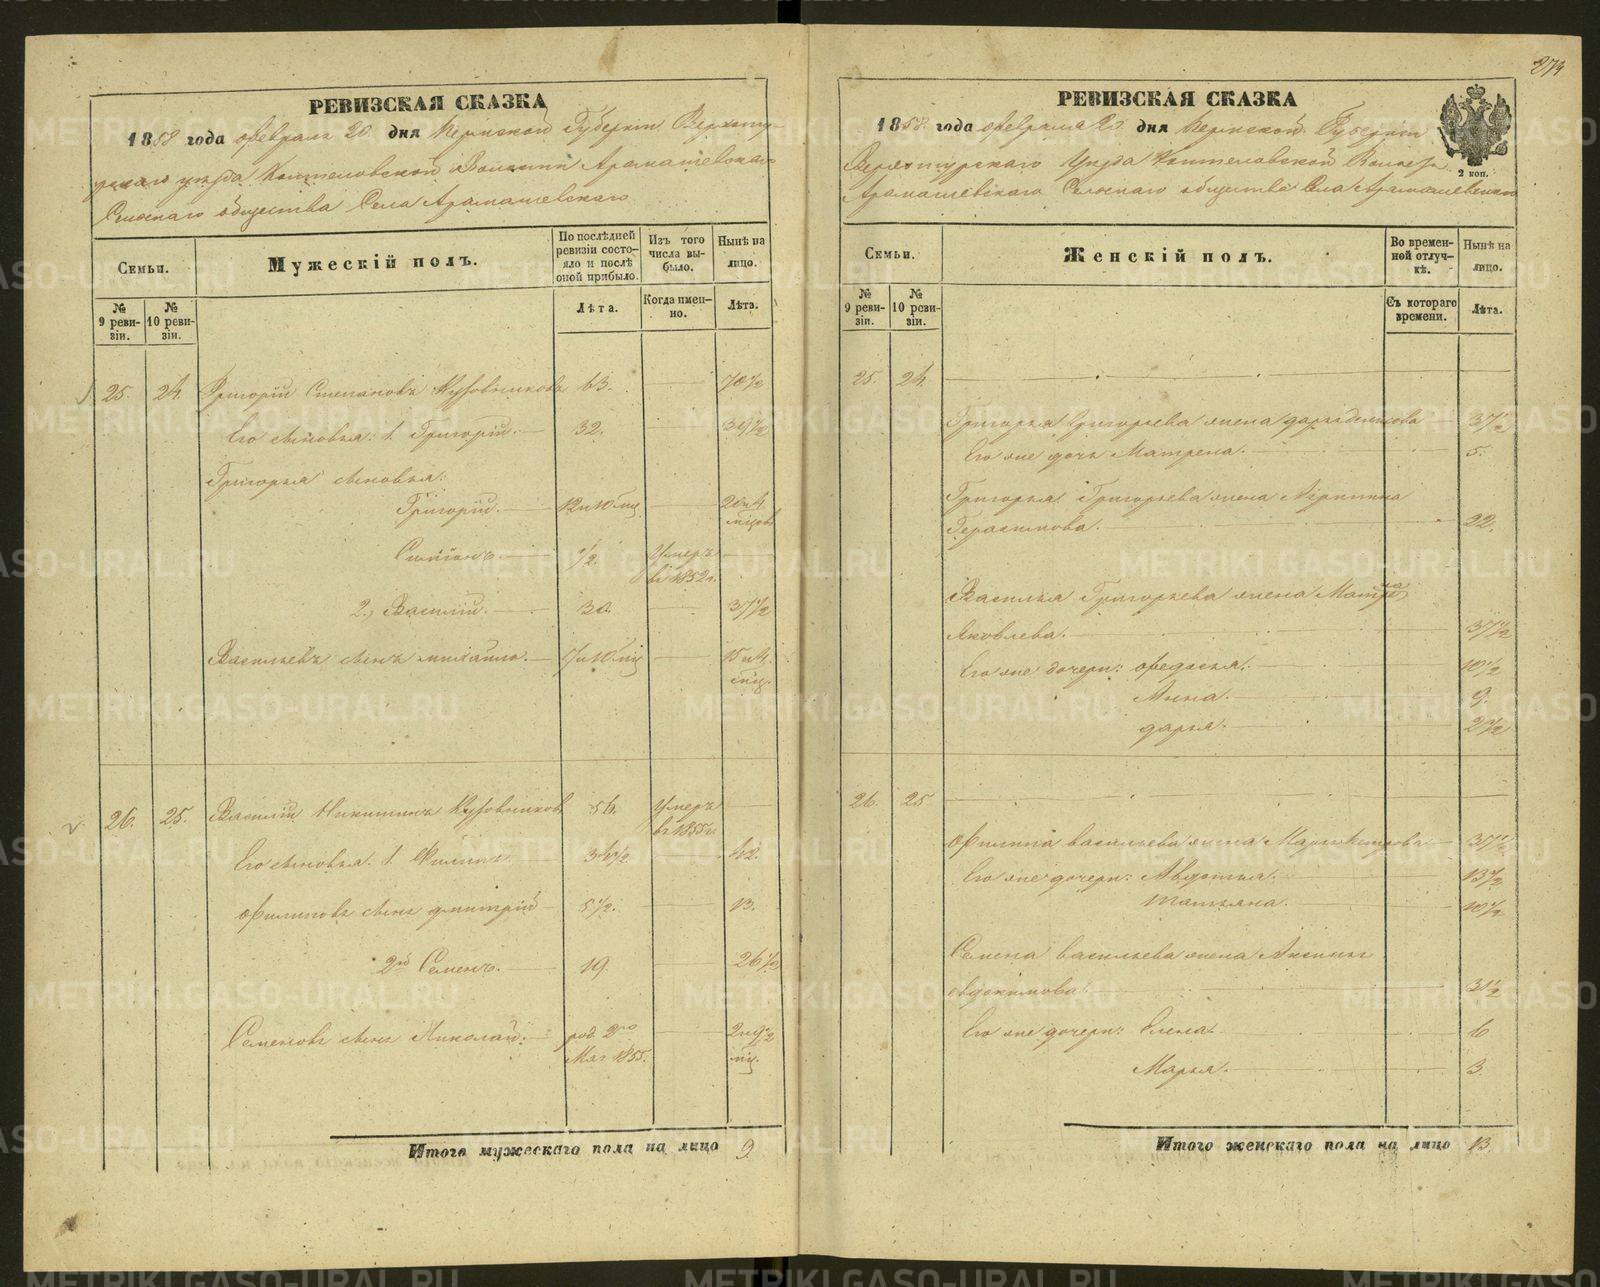 274
РЕВИЗСКАЯ СКАЗКА
1858 года февраля 20 дня Пермской Губерніи Верхоту-
рскаго уезда Коптеловской Волости Арамашевскаго
Сельскаго общества Села Арамашевскаго
Семьи.
Мужескій полъ.
По послѣдней ревизіи состо-яло и послѣ оной прибыло.
Изъ того числа вы-было.
Нынѣ на лицо.
№ 9 реви-зіи.
№ 10 реви-зіи.
Лѣта.
Когда имен-но.
Лѣта.
25. 24. Григорій Степановъ Кузовниковъ 63. 70½
Его сыновья: 1. Григорій. 32. 39½
Григорья сыновья:
Григорій. 12 и 10 мц 20 и 4 мѣцов
Степанъ. ½. Умеръ въ 1852 г.
2. Василій. 30. 37½
Васильевъ сынъ Михайло. 7 и 10 мц 15 и 4 мѣц.
26. 25. Василій Никитинъ Кузовниковъ 56. Умеръ въ 1855 г.
Его сыновья. 1. Филипъ 34½. 42.
Филиповъ сынъ Дмитрій 5½. 13.
2й Семенъ. 19. 26½
Семеновъ сынъ Николай. род. 2го Мая 1855. 2 и 9½ мц.
Итого мужескаго пола на лицо 9.
РЕВИЗСКАЯ СКАЗКА
1858 года февраля 20 дня Пермской Губерніи
Верхотурскаго Уезда Коптеловской Волости
Арамашевскаго Сельскаго общества Села Арамашевскаго
2 коп.
Семьи.
Женскій полъ.
Во времен-ной отлуч-кѣ.
Нынѣ на лицо.
№ 9 реви-зіи.
№ 10 реви-зіи.
Съ котораго времени.
Лѣта.
25. 24.
Григорья Григорьева жена Дарья Денисова 37½
Его же дочь Матрена. 5.
Григорья Григорьева жена Агрипина
Герасимова. 22.
Василья Григорьева жена
Яковлева. 37½
Его же дочери: Федосья. 10½
Анна. 9.
Дарья. 2½
26. 25
Филипа Васильева жена Марья 35½
Его же дочери: Авдотья. 13½
Татьяна. 10½
Семена Васильева жена Аксинья
Евдокимова 31½
Его же дочери: Елена. 6
Марья. 3
Итого женскаго пола на лицо 13.
METRIKI.GASO-URAL.RU